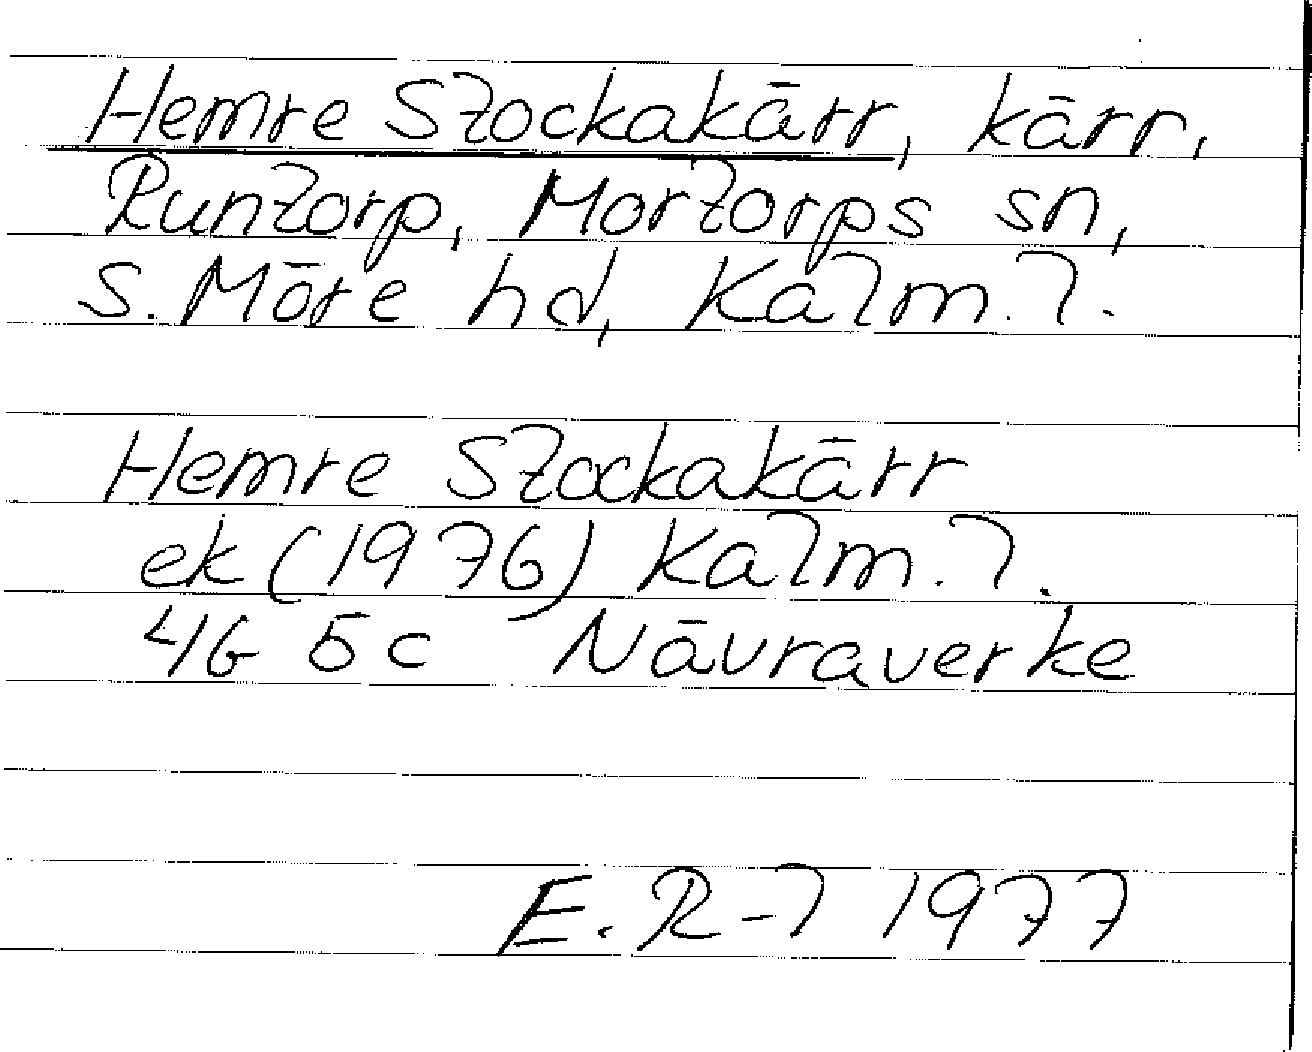 Hemre Stockakärr, kärr,
Runtorp, Mortorps sn,
S. Möre hd, Kalm. l.
Hemre Stockakärr
ek (1976) Kalm. l.
4G 5c Nävraverke
E. R-l 1977